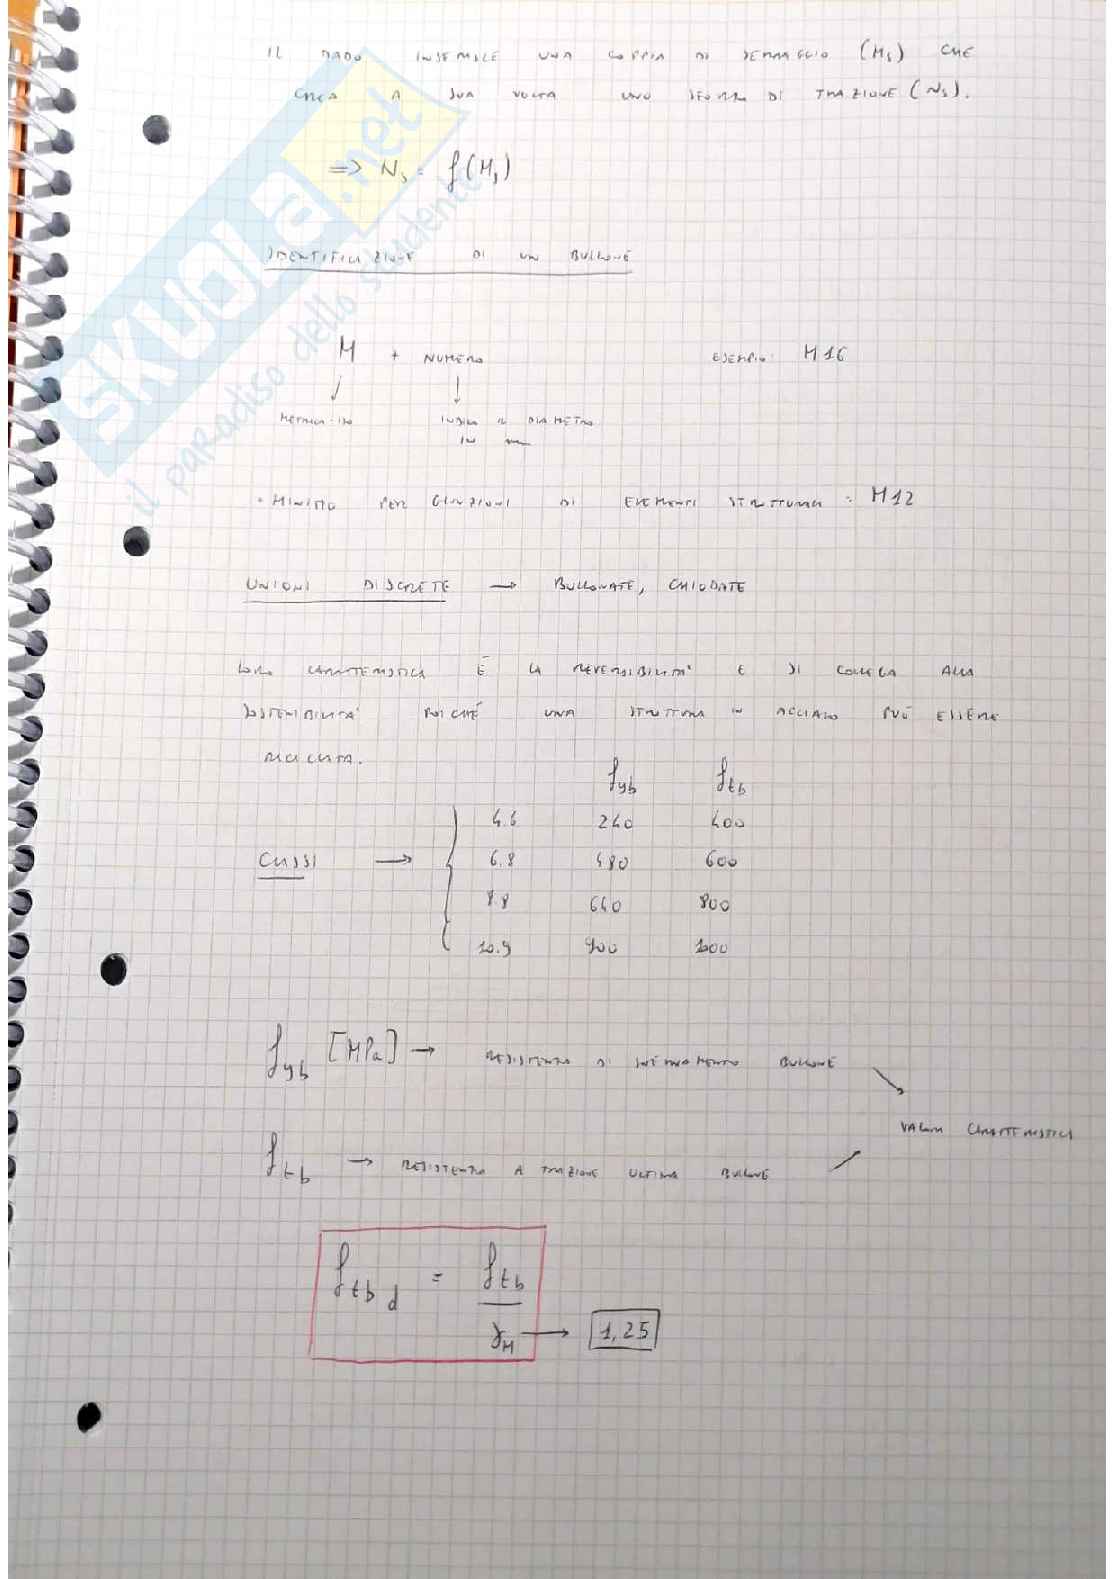 IL DADO INSERISCE UNA COPPIA DI SERRAGGIO (Ms) CHE
CREA A SUA VOLTA UNO SFORZO DI TRAZIONE (Ns).
=> Ns = f(Ms)
IDENTIFICAZIONE DI UN BULLONE
M + NUMERO ESEMPIO: M16
METRICA ISO INDICA IL DIAMETRO
IN mm
• MINIMO PER GIUNZIONI DI ELEMENTI STRUTTURALI: M12
UNIONI DISCRETE → BULLONATE, CHIODATE
LORO CARATTERISTICA È LA REVERSIBILITA' E SI COLLEGA ALLA
SOSTENIBILITA' POICHÉ UNA STRUTTURA IN ACCIAIO PUÒ ESSERE
RICICLATA.
fyb ftb
4.6 240 400
CLASSI → 6.8 480 600
8.8 640 800
10.9 900 1000
fyb [MPa] → RESISTENZA DI SNERVAMENTO BULLONE
VALORI CARATTERISTICI
ftb → RESISTENZA A TRAZIONE ULTIMA BULLONE
ftb d = ftb / γM → 1,25
SKUOLA.net
il paradiso dello studente